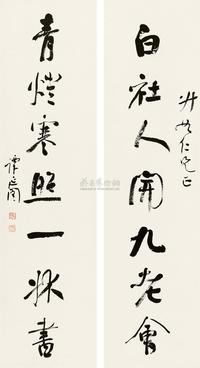 仁兄正
白社人開九老會
青燈寒照一牀書
譚延闓